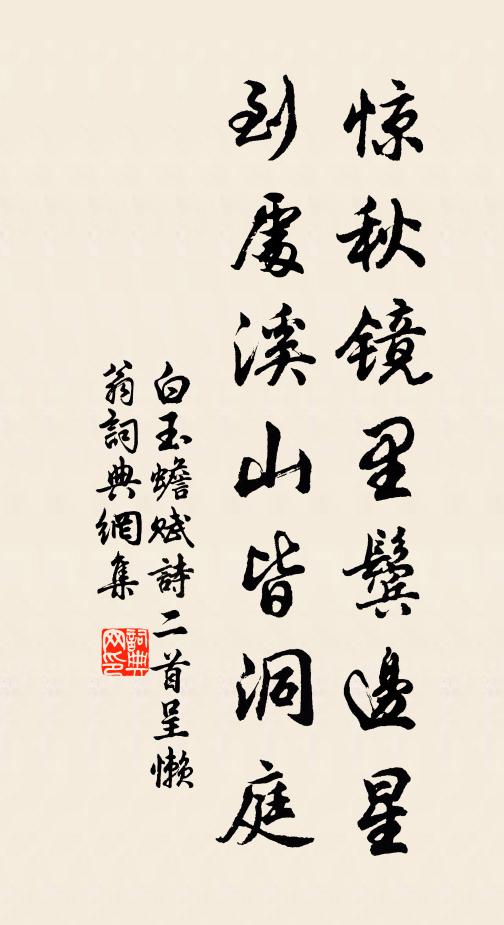 惊秋镜里鬓邊星
到處溪山皆洞庭
白玉蟾赋詩二首呈懒
翁詞典網集
詞典网印